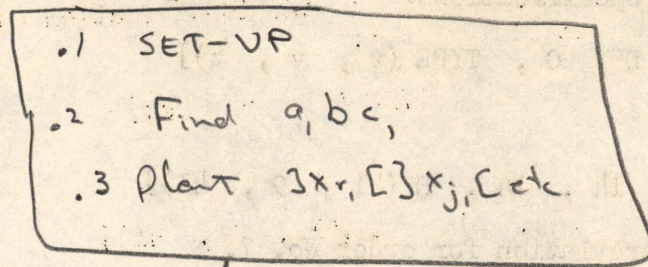 .1 SET-UP
.2 Find a, b c,
.3 Plant ]xr, []xj, [ etc